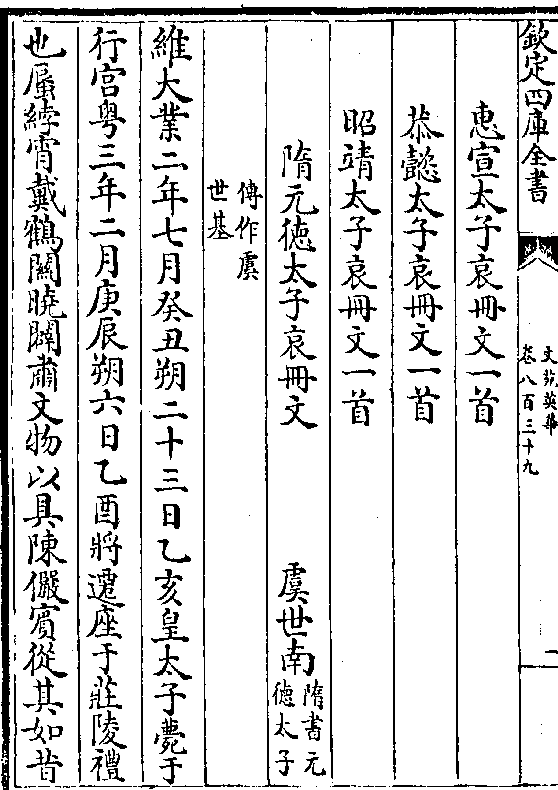 欽定四庫全書
文苑英華
卷八百三十九
一
惠宣太子哀冊文一首
恭懿太子哀冊文一首
昭靖太子哀冊文一首
隋元德太子哀冊文
虞世南
隋書元
德太子
傳作虞
世基
維大業二年七月癸丑朔二十三日乙亥皇太子薨于
行宮粤三年二月庚辰朔六日乙酉將遷座于莊陵禮
也蜃綍宵載鶴闗曉闢肅文物以具陳儼賓從其如昔